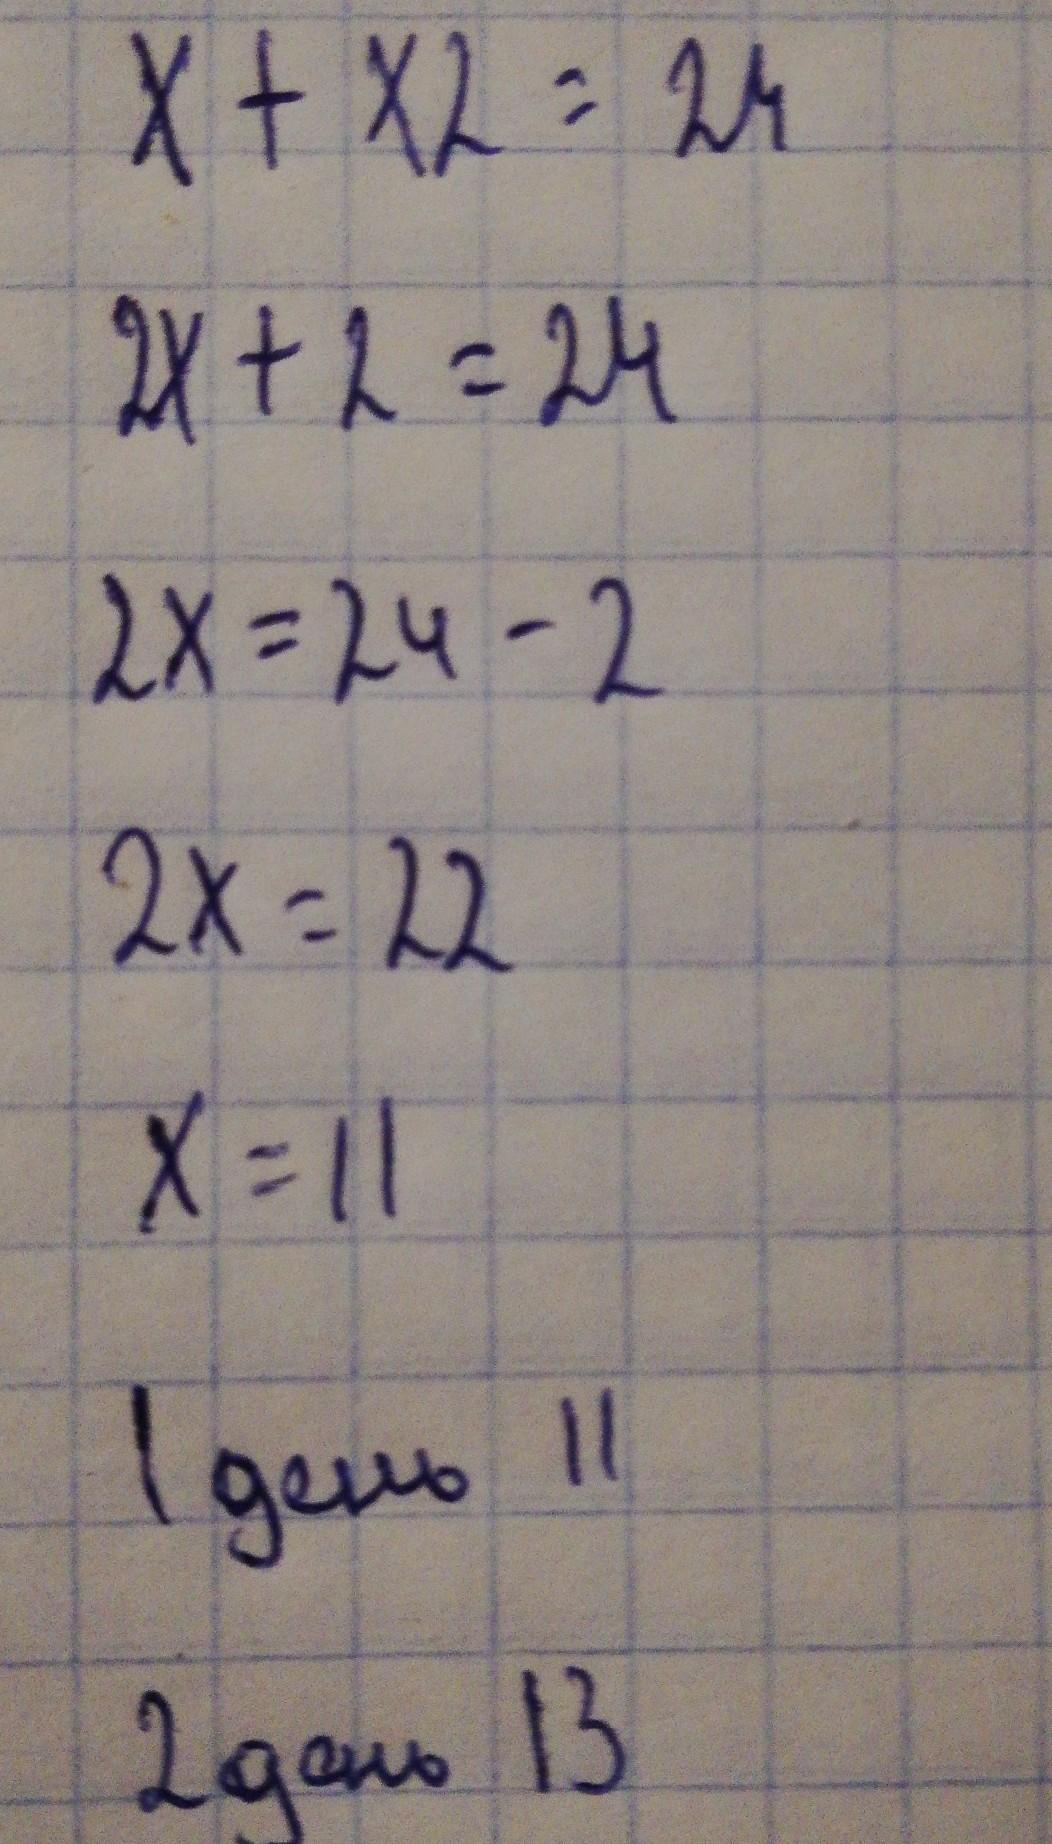 x + x2 = 24
2x + 2 = 24
2x = 24 - 2
2x = 22
x = 11
1 день 11
2 день 13